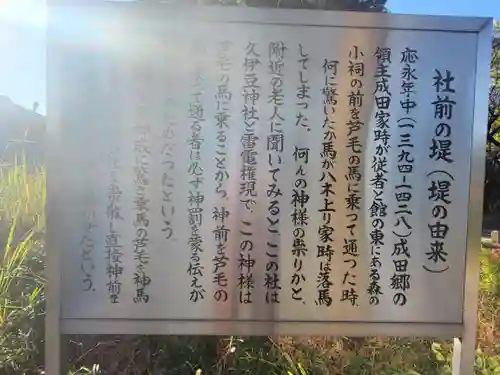 社前の堤（堤の由来）
応永年中（一三九四ー一四二八）成田郷の
領主成田家時が従者と館の東にある森の
小祠の前を芦毛の馬に乗って通った時、
何に驚いたか馬が八木上り家時は落馬
してしまった。何んの神様の祟りかと、
附近の老人に聞いてみるとこの社は
久伊豆神社と雷電権現で、この神様は
芦毛の馬に乗ることから、神前を芦毛の
て通る者は必ず神罰を蒙る伝えが
だったという。
驚き乗馬の芦毛を神馬
崇敬し直接神前を
たという。